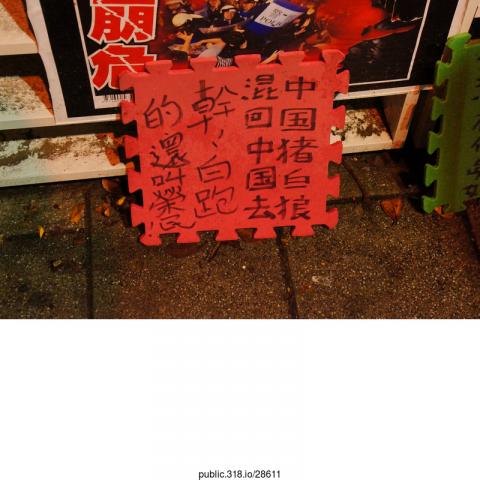 崩
危
POLICE
中国猪白狼
混回中国去
幹!、白跑
的還叫榮民
public.318.io/28611